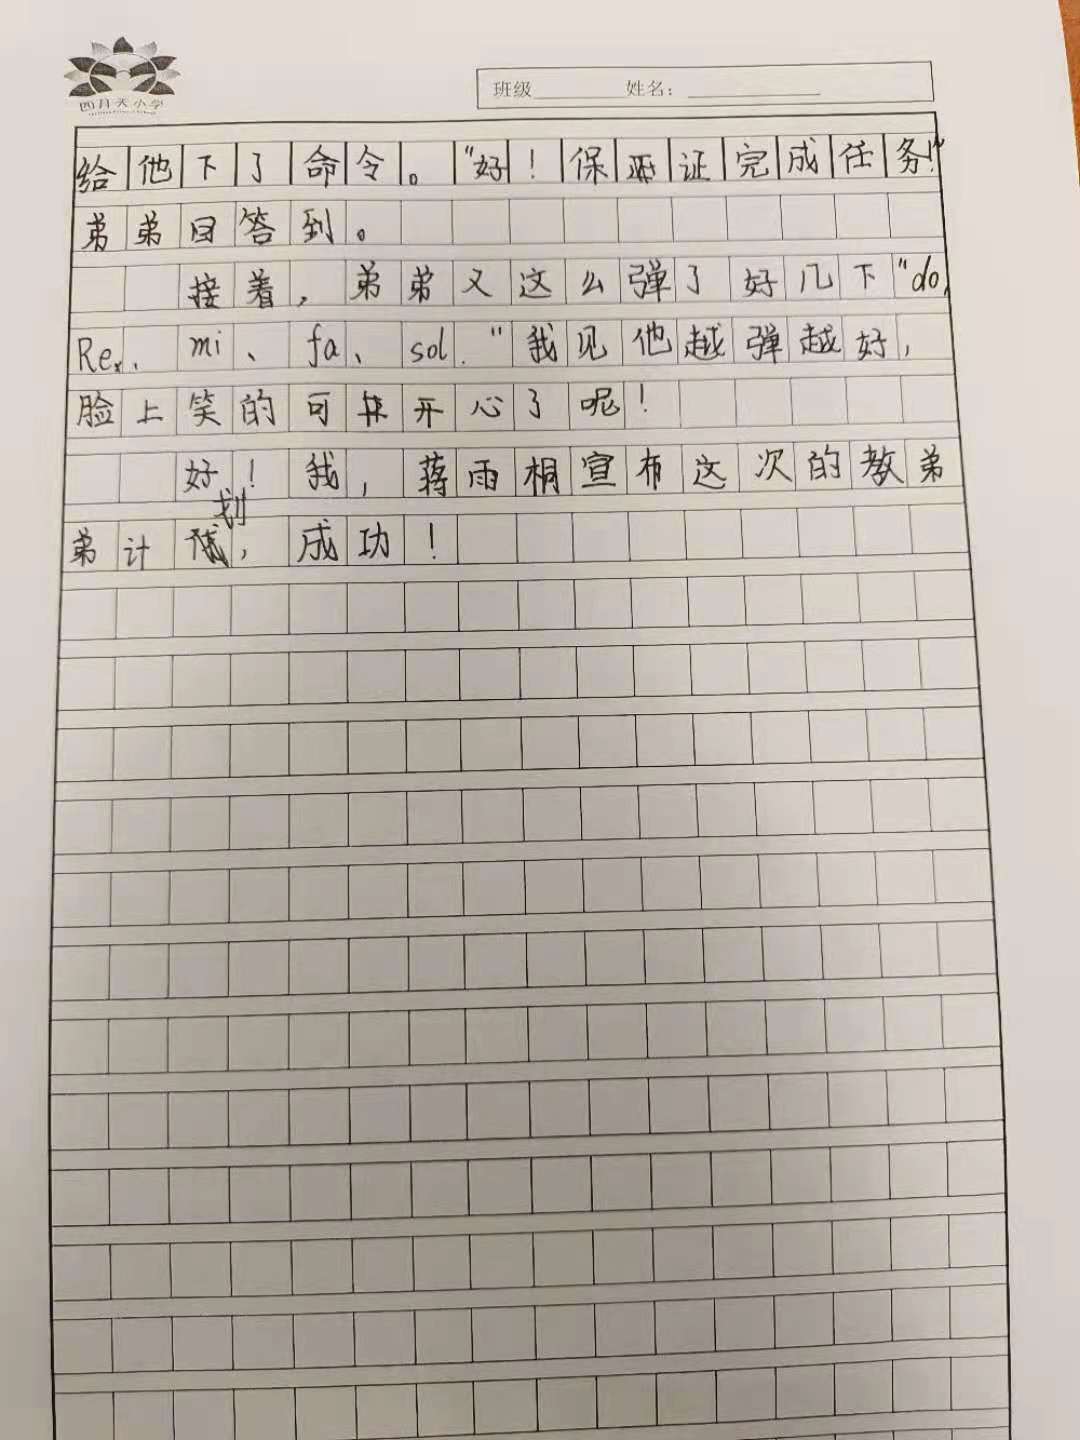 四月天小学
班级 姓名：
给他下了命令。“好！保证完成任务！”
弟弟回答到。
接着，弟弟又这么弹了好几下“do、
Re、mi、fa、sol.”我见他越弹越好，
脸上笑的可开心了呢！
好！我，蒋雨桐宣布这次的教弟
弟计划，成功！